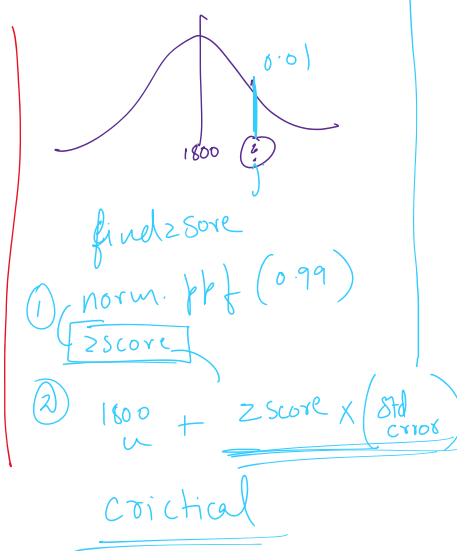 0.01
1800 ?
find zsore
① norm.ppf (0.99)
zscore
② 1800 + zscore x (std error)
u
crictical